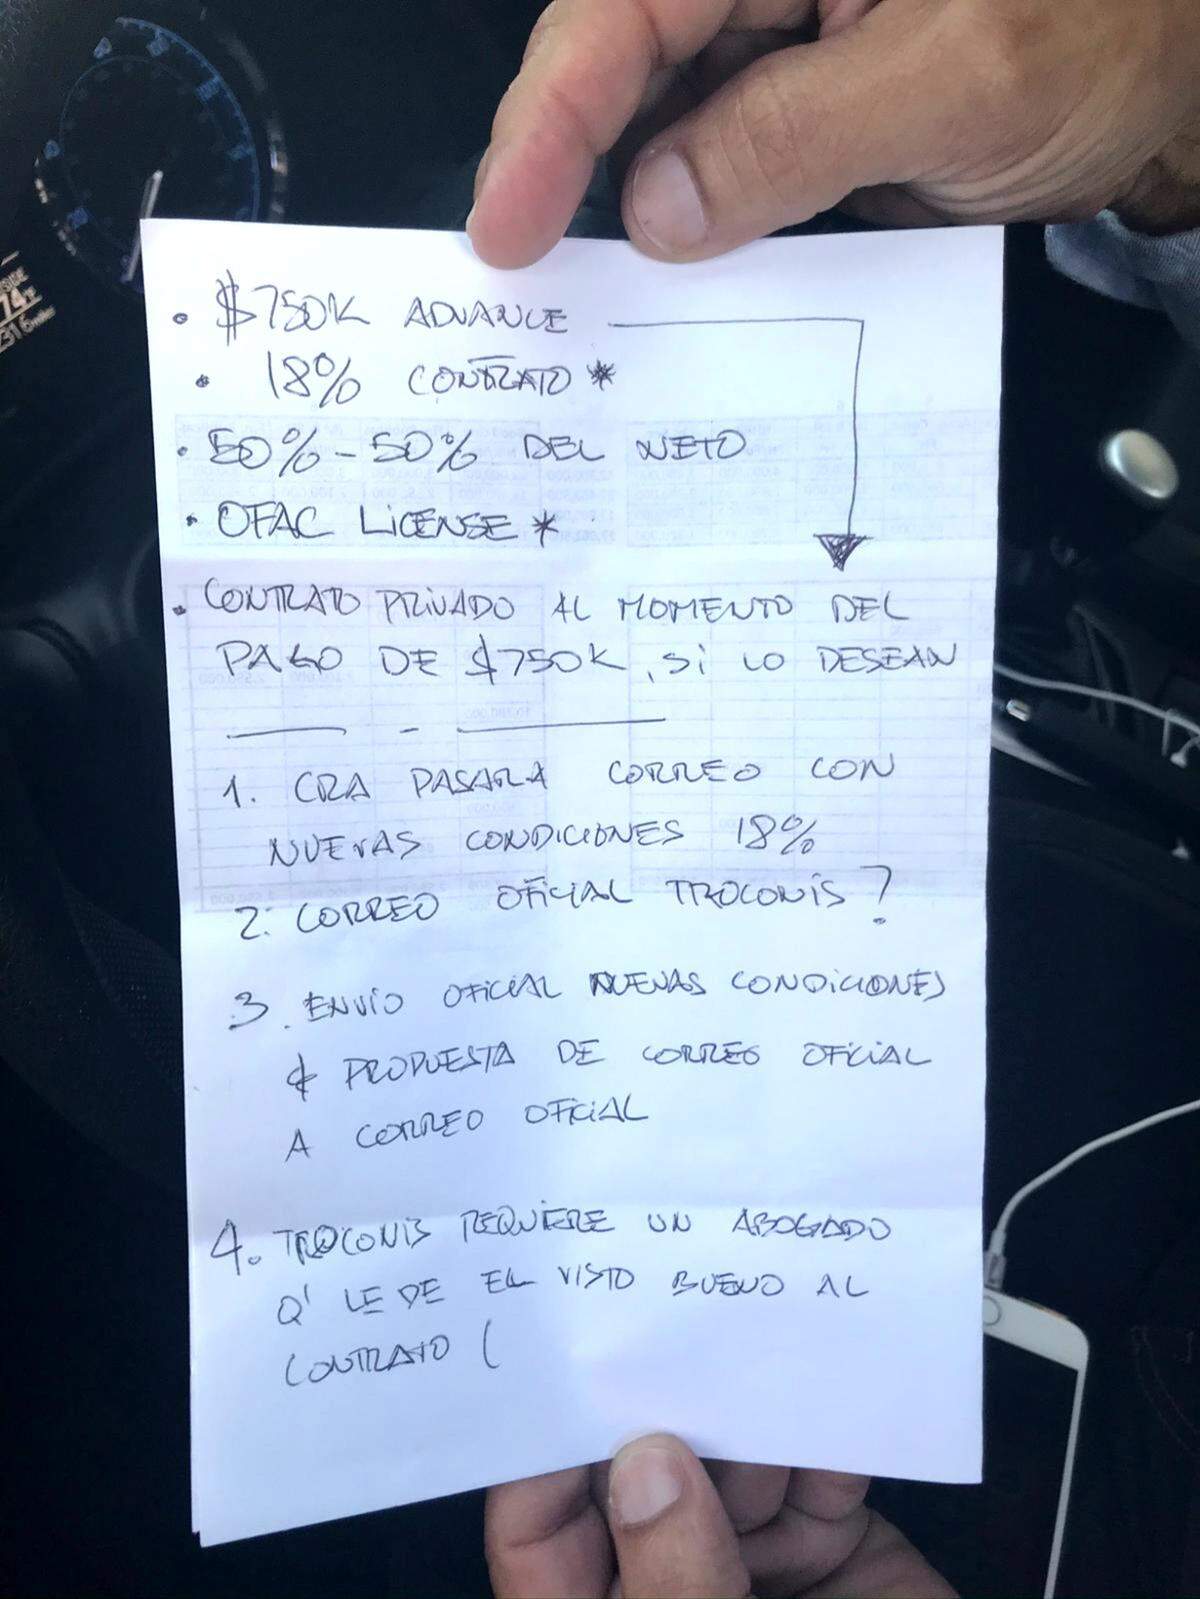 • $750K ADVANCE
• 18% CONTRATO *
• 50% - 50% DEL NETO
• OFAC LICENSE *
• CONTRATO PRIVADO AL MOMENTO DEL
PAGO DE $750K, SI LO DESEAN
1. CRA PASARA CORREO CON
NUEVAS CONDICIONES 18%
2. CORREO OFICIAL TROCONIS ?
3. ENVIO OFICIAL NUEVAS CONDICIONES
& PROPUESTA DE CORREO OFICIAL
A CORREO OFICIAL
4. TROCONIS REQUIERE UN ABOGADO
Q' LE DE EL VISTO BUENO AL
CONTRATO (